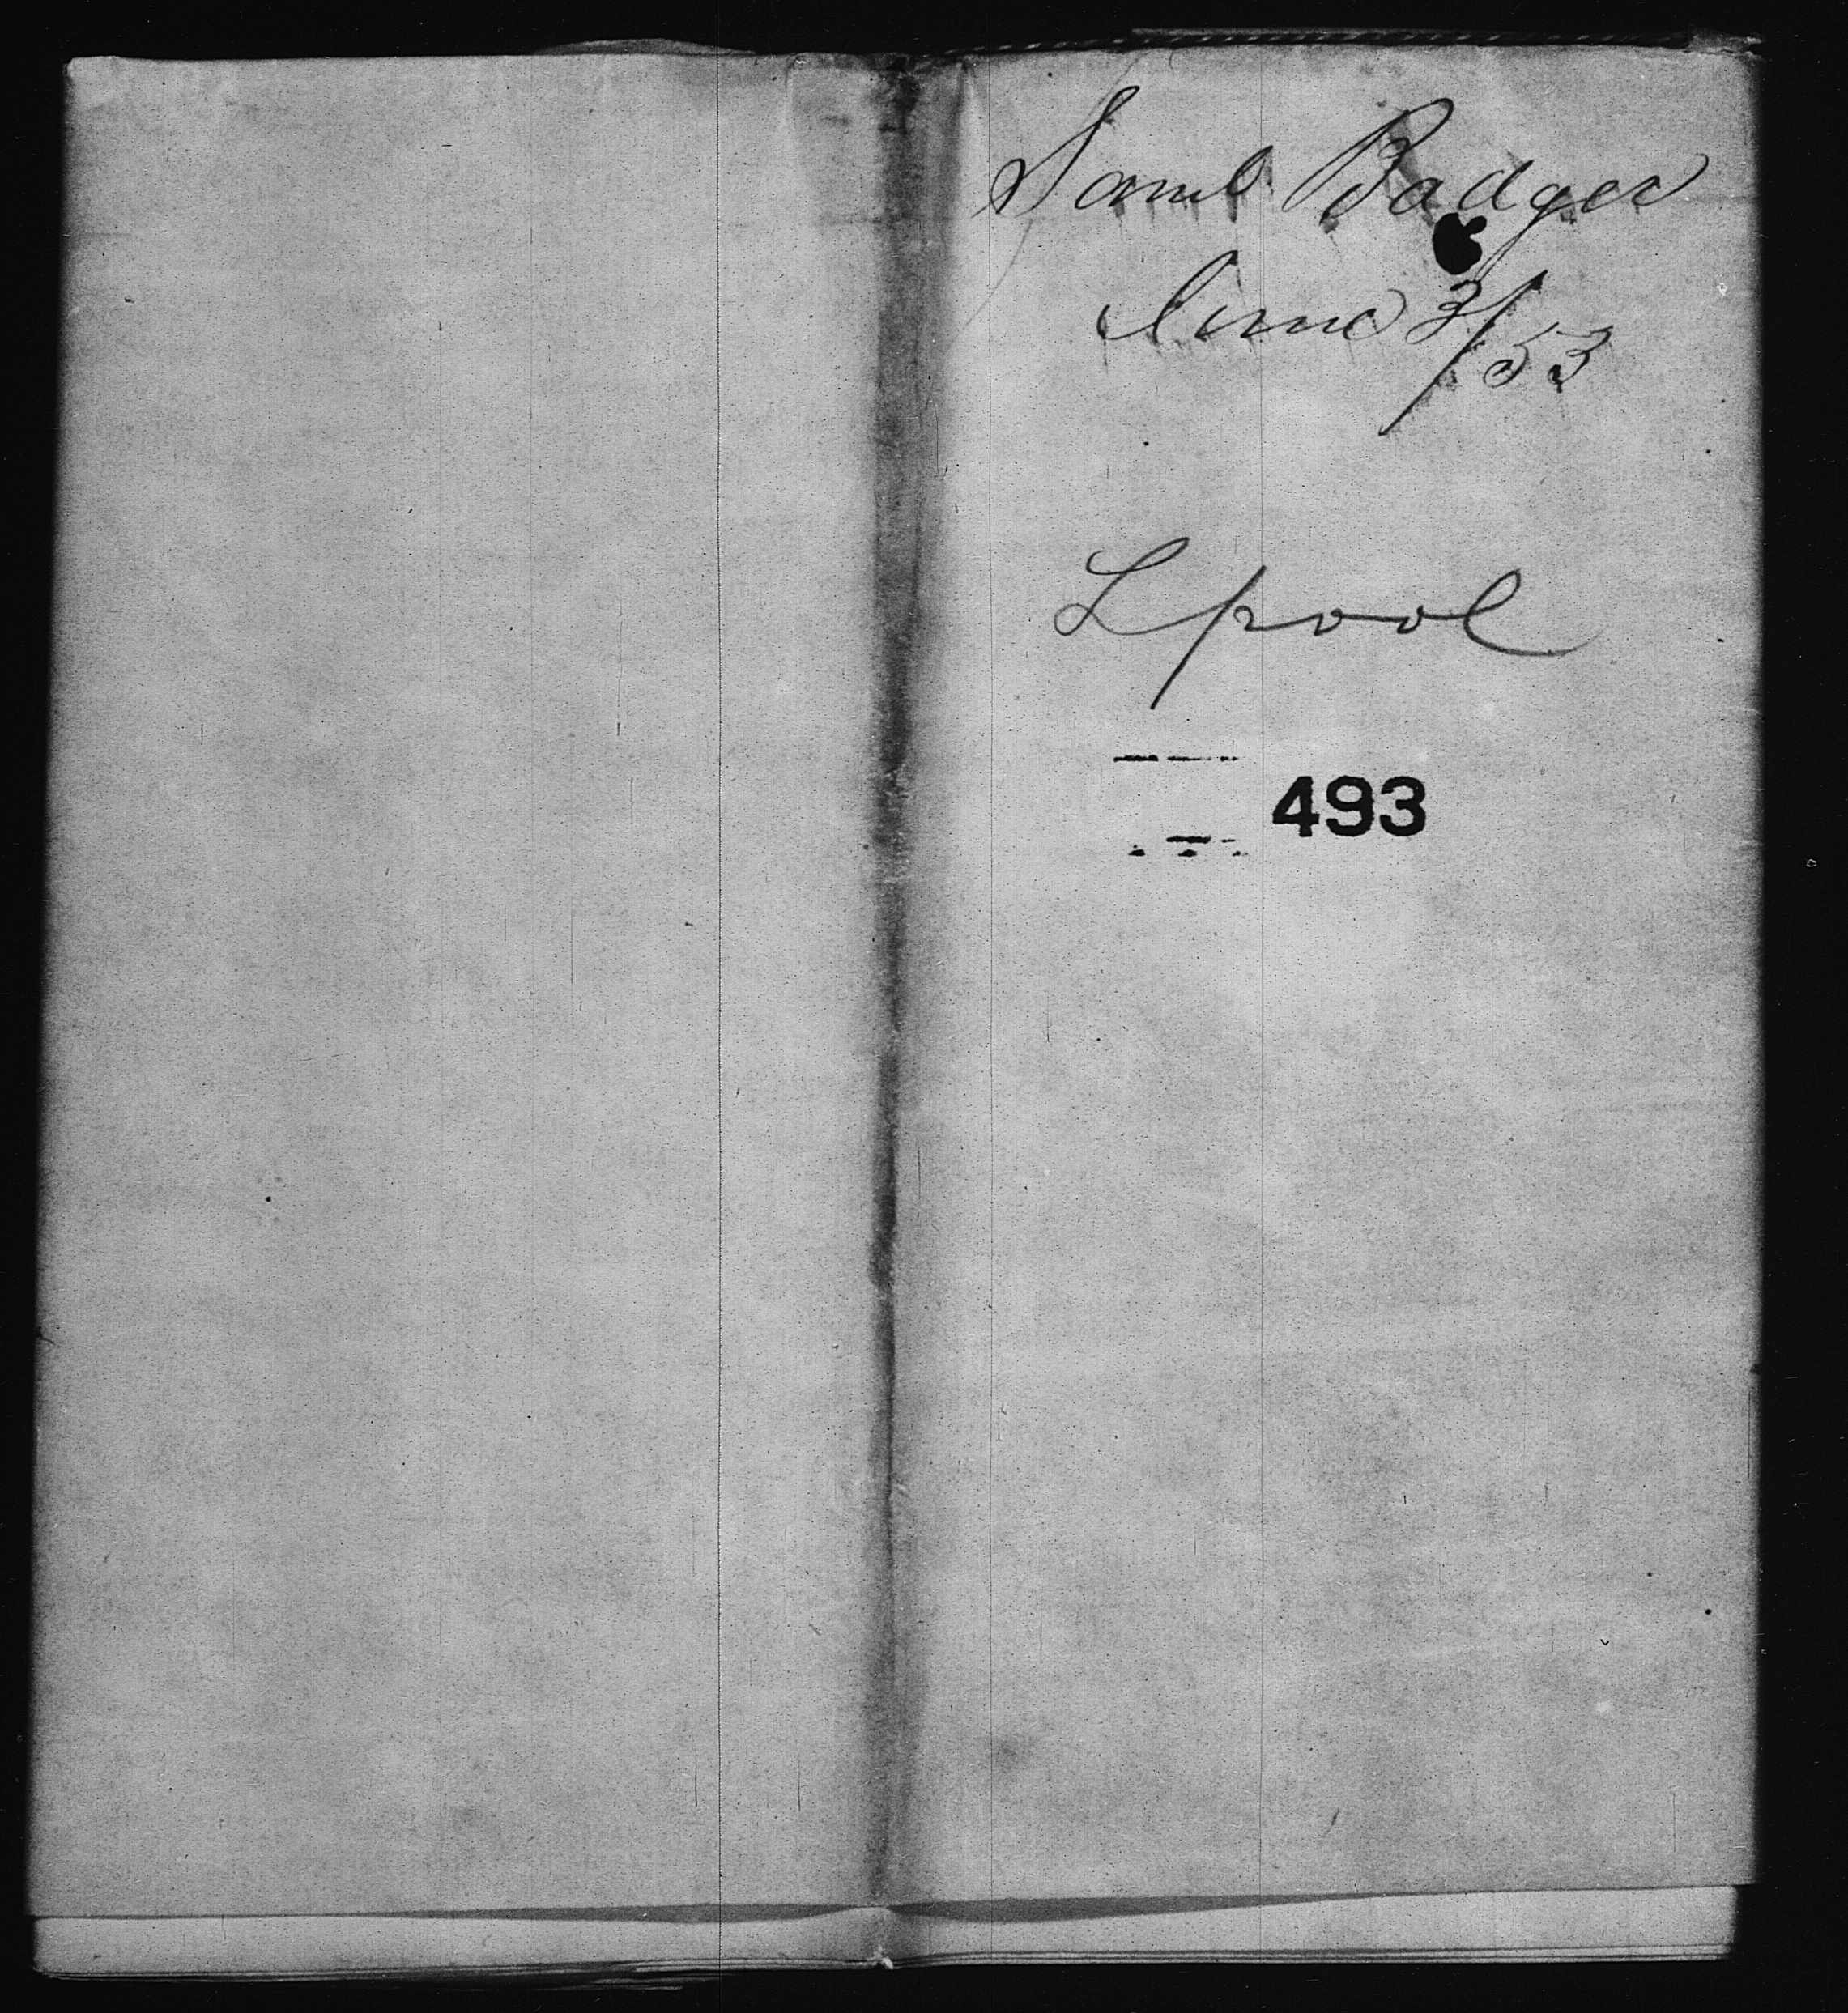 Saml Badger
June 3/53
Lpool
493